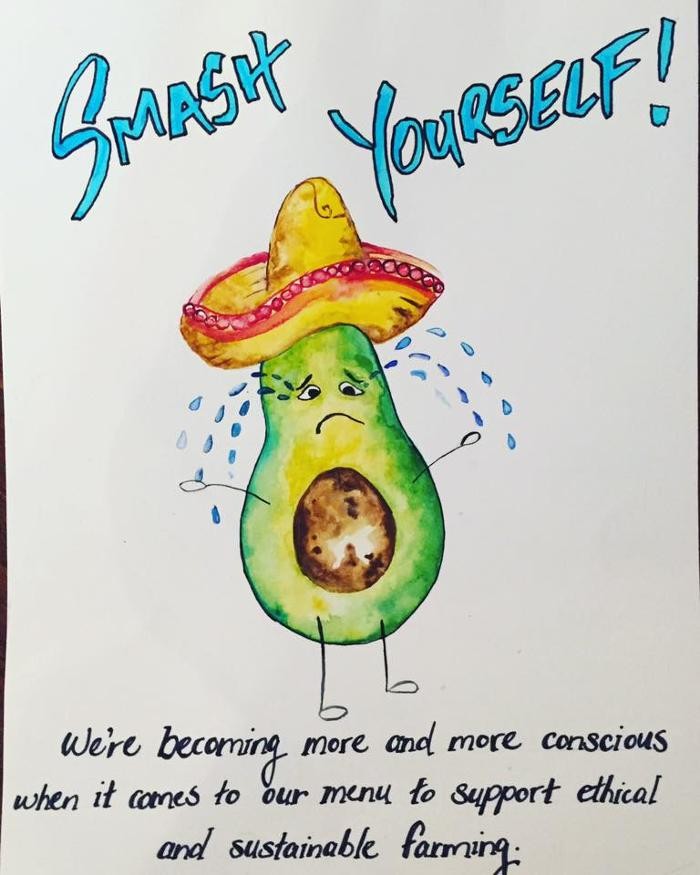 SMASH YOURSELF!
We're becoming more and more conscious
when it comes to our menu to support ethical
and sustainable farming.